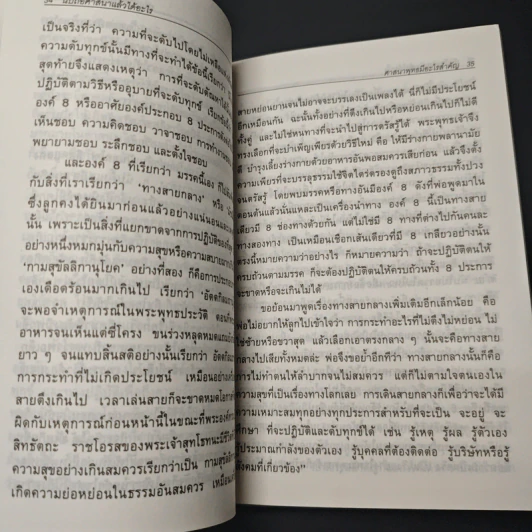 34 นับถือศาสนาแล้วได้อะไร
เป็นจริงที่ว่า ความที่จะดับไปโดยไม่เหลือ
ความดับทุกข์นั้นมีทางที่จะทำได้ข้อนี้เรียกว่า
สุดท้ายจึงแสดงเหตุว่า การที่จะดับ
ปฏิบัติตามวิธีหรืออุบายที่จะดับทุกข์ เรียก
องค์ 8 หรืออาศัยองค์ประกอบ 8 ประการ
เห็นชอบ ความคิดชอบ วาจาชอบ การทำงาน
พยายามชอบ ระลึกชอบ และตั้งใจชอบ
และองค์ 8 ที่เรียกว่า มรรคนี้เอง ก็
กับสิ่งที่เราเรียกว่า “ทางสายกลาง” หรือ
ซึ่งลูกคงได้ยินมาก่อนแล้วอย่างแน่นอน
นั้น เพราะเป็นสิ่งที่แยกขาดจากการปฏิบัติ
อย่างหนึ่งหมกมุ่นกับความสุขหรือความสบาย
“กามสุขัลลิกานุโยค” อย่างที่สอง ก็คือการ
เองเดือดร้อนมากเกินไป เรียกว่า
จะพอจำเหตุการณ์ในพระพุทธประวัติ ตอน
อาหารจนเห็นแต่ซี่โครง ขนร่วงหลุดหมด
ยาว ๆ จนแทบสิ้นสติอย่างนั้นเรียกว่า
การกระทำที่ไม่เกิดประโยชน์ เหมือนอย่าง
สายตึงเกินไป เวลาเล่นสายก็จะขาดหมดโอกาส
ผิดกับเหตุการณ์ก่อนหน้านี้ในขณะที่พระองค์
สิทธัตถะ ราชโอรสของพระเจ้าสุทโธทนะ
ความสุขอย่างเกินสมควรเรียกว่าเป็น กามสุขัลลิ
เกิดความย่อหย่อนในธรรมอันสมควร เหมือน
ศาสนาพุทธมีอะไรสำคัญ 35
สายหย่อนยานจนไม่อาจจะบรรเลงเป็นเพลงได้ นี่ก็ไม่มีประโยชน์
อีกเหมือนกัน ฉะนั้นทั้งอย่างที่ตึงเกินไปหรือหย่อนเกินไปก็ไม่ดี
ทั้งคู่ และไม่ใช่หนทางที่จะนำไปสู่การตรัสรู้ได้ พระพุทธเจ้าจึง
ทรงเลือกที่จะบำเพ็ญเพียรด้วยวิธีใหม่ คือ ให้มีร่างกายพลานามัย
ดี บำรุงเลี้ยงร่างกายด้วยอาหารอันพอสมควรเสียก่อน แล้วจึงตั้ง
ความเพียรที่จะบรรลุธรรมใช้จิตใคร่ครองดูถึงสภาวธรรมทั้งปวง
จนตรัสรู้ โดยพบมรรคหรือทางอันมีองค์ 8 ดังที่พ่อพูดมาใน
ตอนต้นแล้วนั่นแหละเป็นเครื่องนำทาง องค์ 8 นี้เป็นทางสาย
เดียวมี 8 ช่องทางด้วยกัน แต่ไม่ใช่มี 8 ทางที่ต่างไปกันคนละ
ทางสองทาง เป็นเหมือนเชือกเส้นเดียวที่มี 8 เกลียวอย่างนั้น
ตรงนี้หมายความว่าอย่างไร ก็หมายความว่า ถ้าจะปฏิบัติตนให้
ครบถ้วนตามมรรค ก็จะต้องปฏิบัติตนให้ครบถ้วนทั้ง 8 ประการ
จะขาดหรือจะเกินไม่ได้
ขอย้อนมาพูดเรื่องทางสายกลางเพิ่มเติมอีกเล็กน้อย คือ
พ่อไม่อยากให้ลูกไปเข้าใจว่า การกระทำอะไรที่ไม่ตึงไม่หย่อน ไม่
ใช่ซ้ายหรือขวาสุด แล้วเลือกเอาตรงกลาง ๆ นั้นจะคือทางสาย
กลางไปเสียทั้งหมดล่ะ พ่อจึงขอย้ำอีกทีว่า ทางสายกลางนั้นก็คือ
การไม่ทำตนให้ลำบากจนไม่สมควร แต่ก็ไม่ตามใจตนเองใน
ความสุขที่เป็นเรื่องทางโลกเลย การเดินสายกลางก็เพื่อว่าจะได้มี
ความเหมาะสมทุกอย่างทุกประการสำหรับที่จะเป็น จะอยู่ จะ
ศึกษา ที่จะปฏิบัติและดับทุกข์ได้ เช่น รู้เหตุ รู้ผล รู้ตัวเอง
รู้ประมาณกำลังของตัวเอง รู้บุคคลที่ต้องติดต่อ รู้บริษัทหรือรู้
สังคมที่เกี่ยวข้อง”